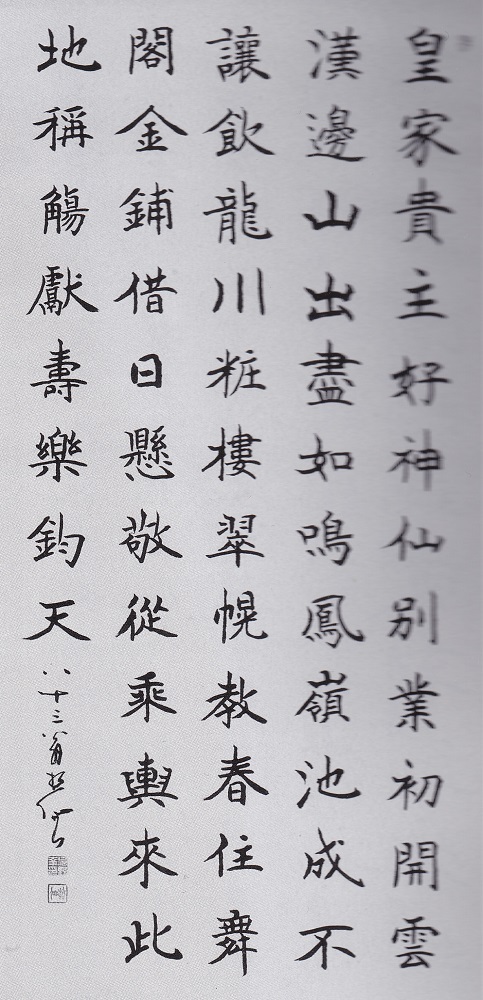 皇家貴主好神仙別業初開雲
漢邊山出盡如鳴鳳嶺池成不
讓飲龍川粧樓翠幌教春住舞
閣金鋪借日懸敬從乘輿來此
地稱觴獻壽樂鈞天
八十三翁